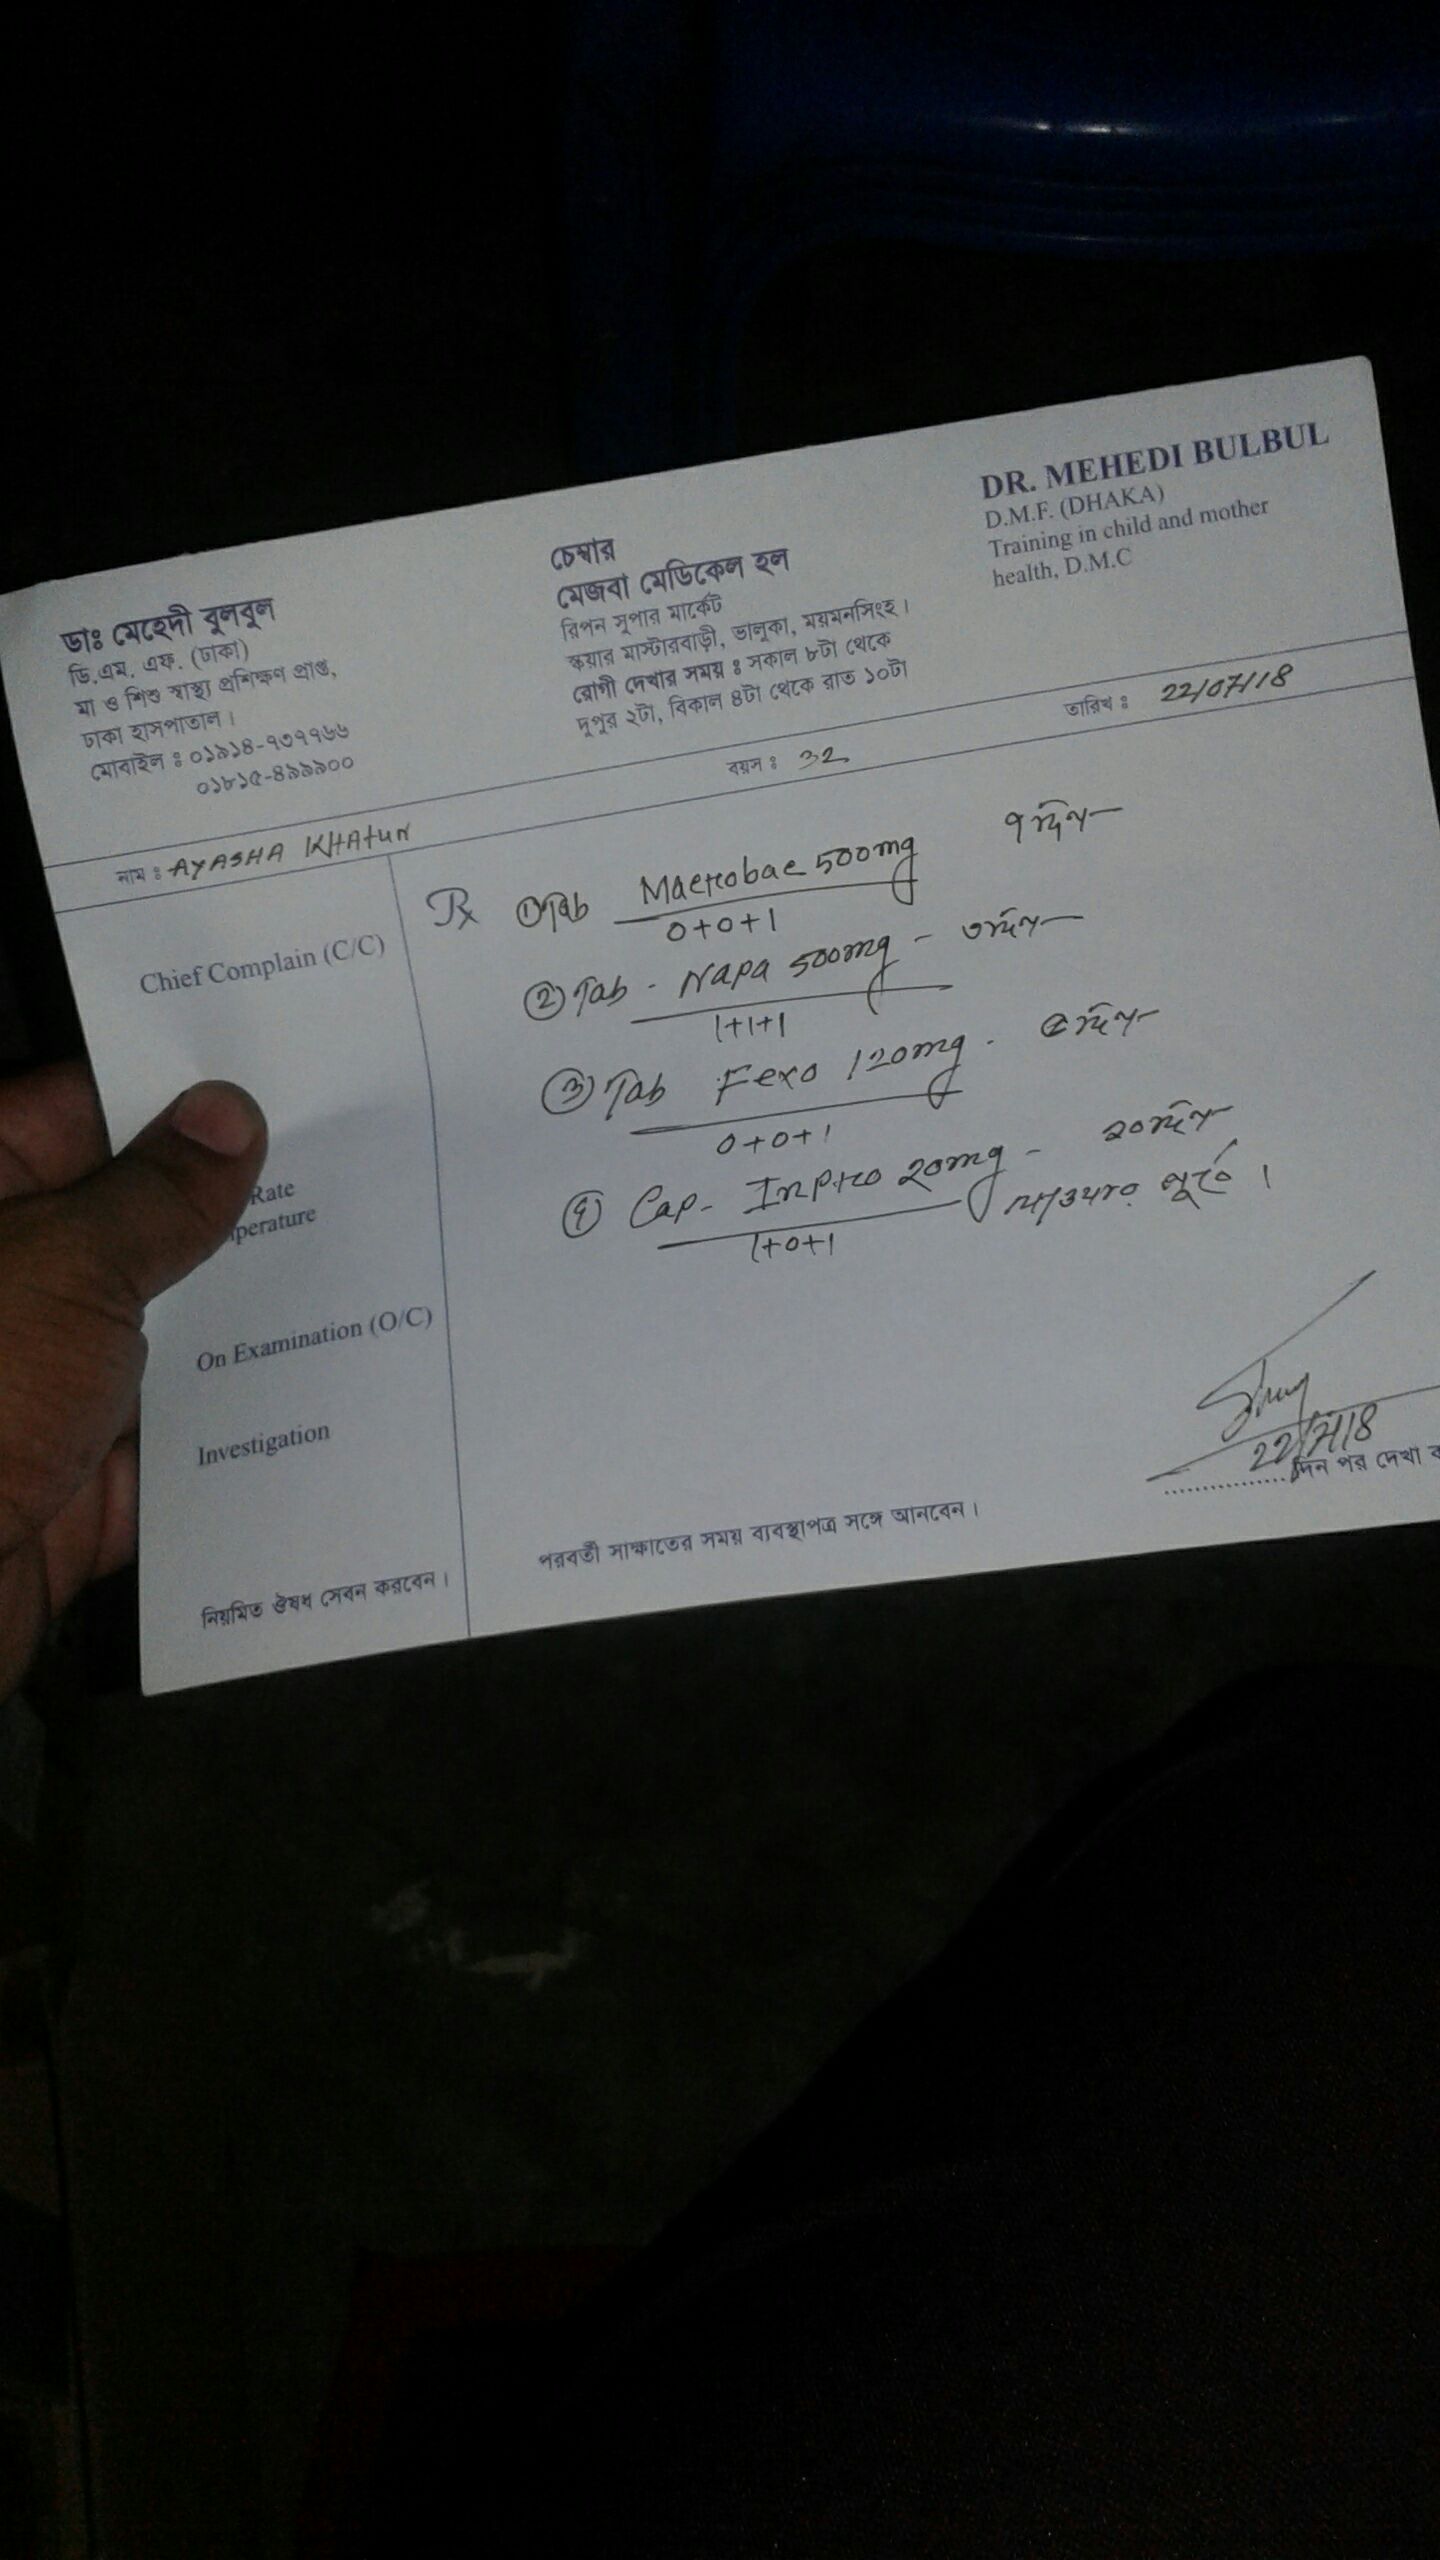 ডাঃ মেহেদী বুলবুল
ডি.এম. এফ. (ঢাকা)
মা ও শিশু স্বাস্থ্য প্রশিক্ষণ প্রাপ্ত,
ঢাকা হাসপাতাল।
মোবাইল : ০১৯১৪-৭৩৭৭৬৬
০১৮১৫-৪৯৯৯০০
চেম্বার
মেজবা মেডিকেল হল
রিপন সুপার মার্কেট
স্কয়ার মাস্টারবাড়ী, ভালুকা, ময়মনসিংহ।
রোগী দেখার সময় : সকাল ৮টা থেকে
দুপুর ২টা, বিকাল ৪টা থেকে রাত ১০টা
DR. MEHEDI BULBUL
D.M.F. (DHAKA)
Training in child and mother
health, D.M.C
নাম : AYASHA KHAtUN বয়স : 32 তারিখ : 22/07/18
Chief Complain (C/C)
Rate
perature
On Examination (O/C)
Investigation
নিয়মিত ঔষধ সেবন করবেন।
Rx ① Tab Macrobac 500mg ৭ দিন
0+0+1
② Tab - Napa 500mg - ৩ দিন
1+1+1
③ Tab Fexo 120mg - ৫ দিন
0+0+1
④ Cap - Inpro 20mg - ২০ দিন
1+0+1 খাওয়ার পূর্বে।
22/7/18
দিন পর দেখা
পরবর্তী সাক্ষাতের সময় ব্যবস্থাপত্র সঙ্গে আনবেন।